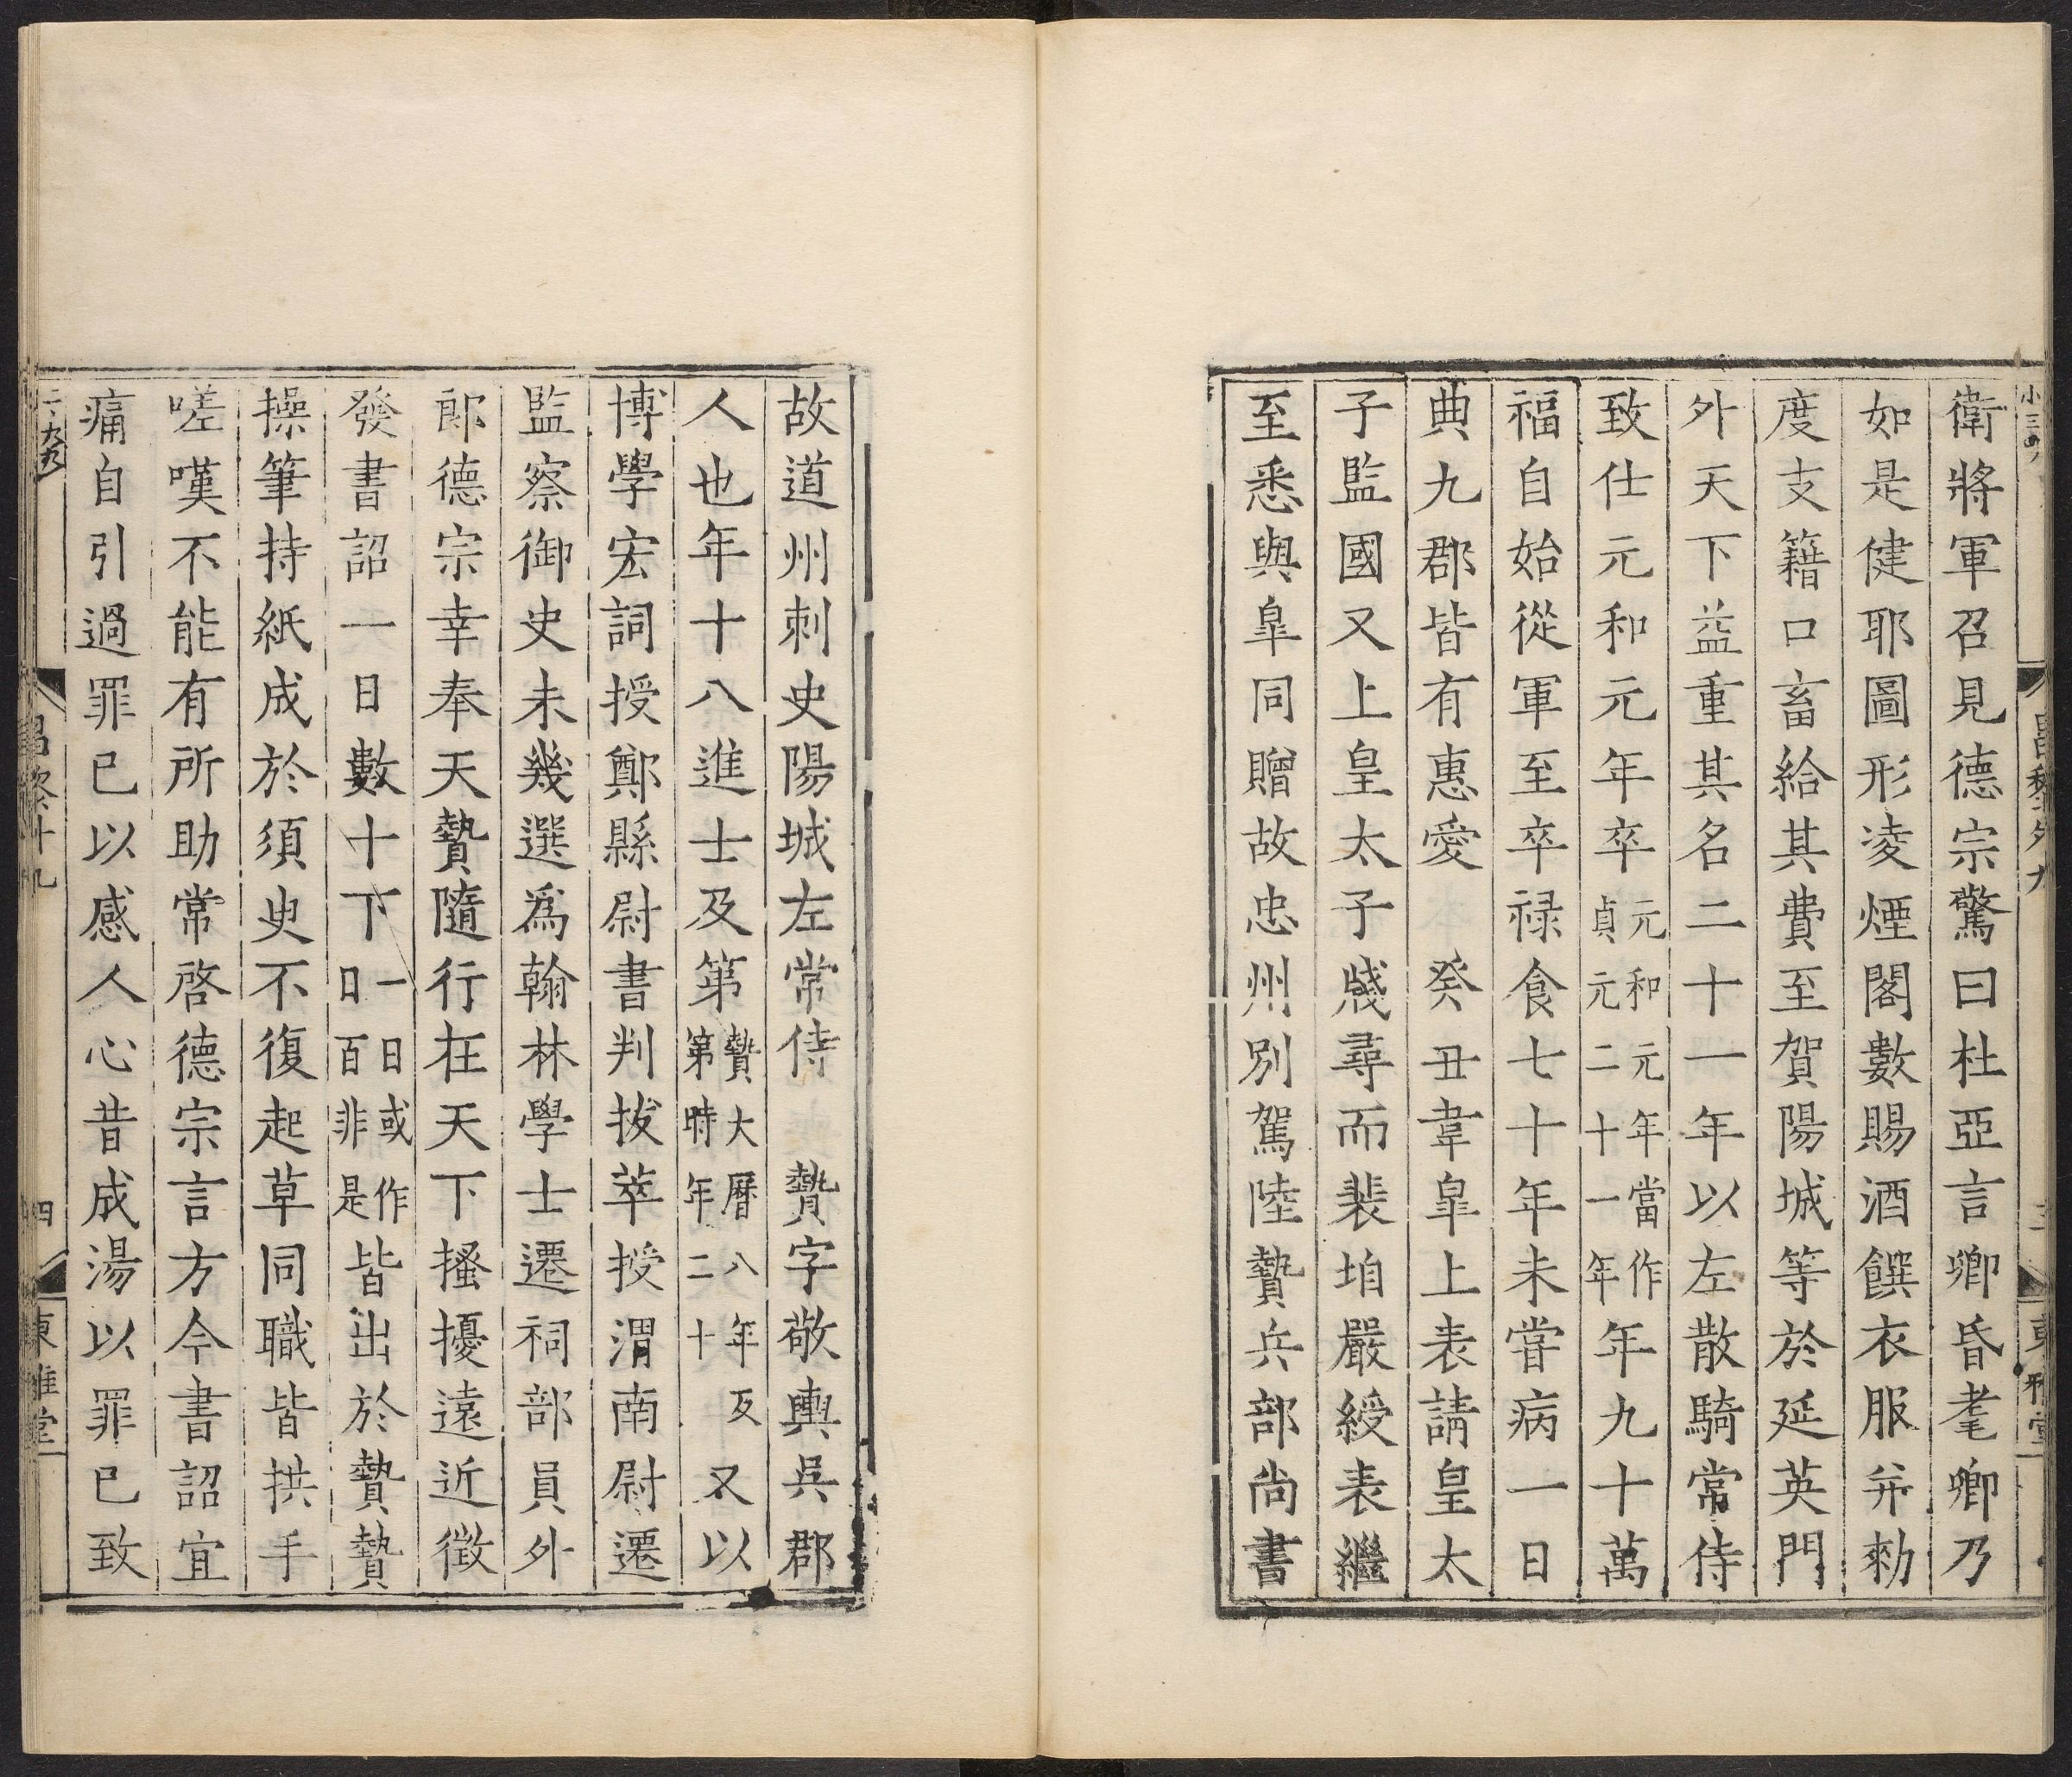 衛將軍召見德宗驚曰杜亞言卿昏耄卿乃
如是健耶圖形凌煙閣數賜酒饌衣服并勑
度支籍口畜給其費至賀陽城等於延英門
外天下益重其名二十一年以左散騎常侍
致仕元和元年卒元和元年當作貞元二十一年年九十萬
福自始從軍至卒禄食七十年未嘗病一日
典九郡皆有惠愛　癸丑韋皐上表請皇太
子監國又上皇太子牋尋而裴均嚴綬表繼
至悉與皐同贈故忠州別駕陸贄兵部尚書
故道州刺史陽城左常侍　贄字敬輿吳郡
人也年十八進士及第贄大曆八年及第時年二十又以
博學宏詞授鄭縣尉書判拔萃授渭南尉遷
監察御史未幾選爲翰林學士遷祠部員外
郎德宗幸奉天贄隨行在天下搔擾遠近徵
發書詔一日數十下一日或作日百非是皆出於贄贄
操筆持紙成於須臾不復起草同職皆拱手
嗟嘆不能有所助常啓德宗言方今書詔宜
痛自引過罪已以感人心昔成湯以罪已致
昌黎外九
東雅堂
四
東雅堂